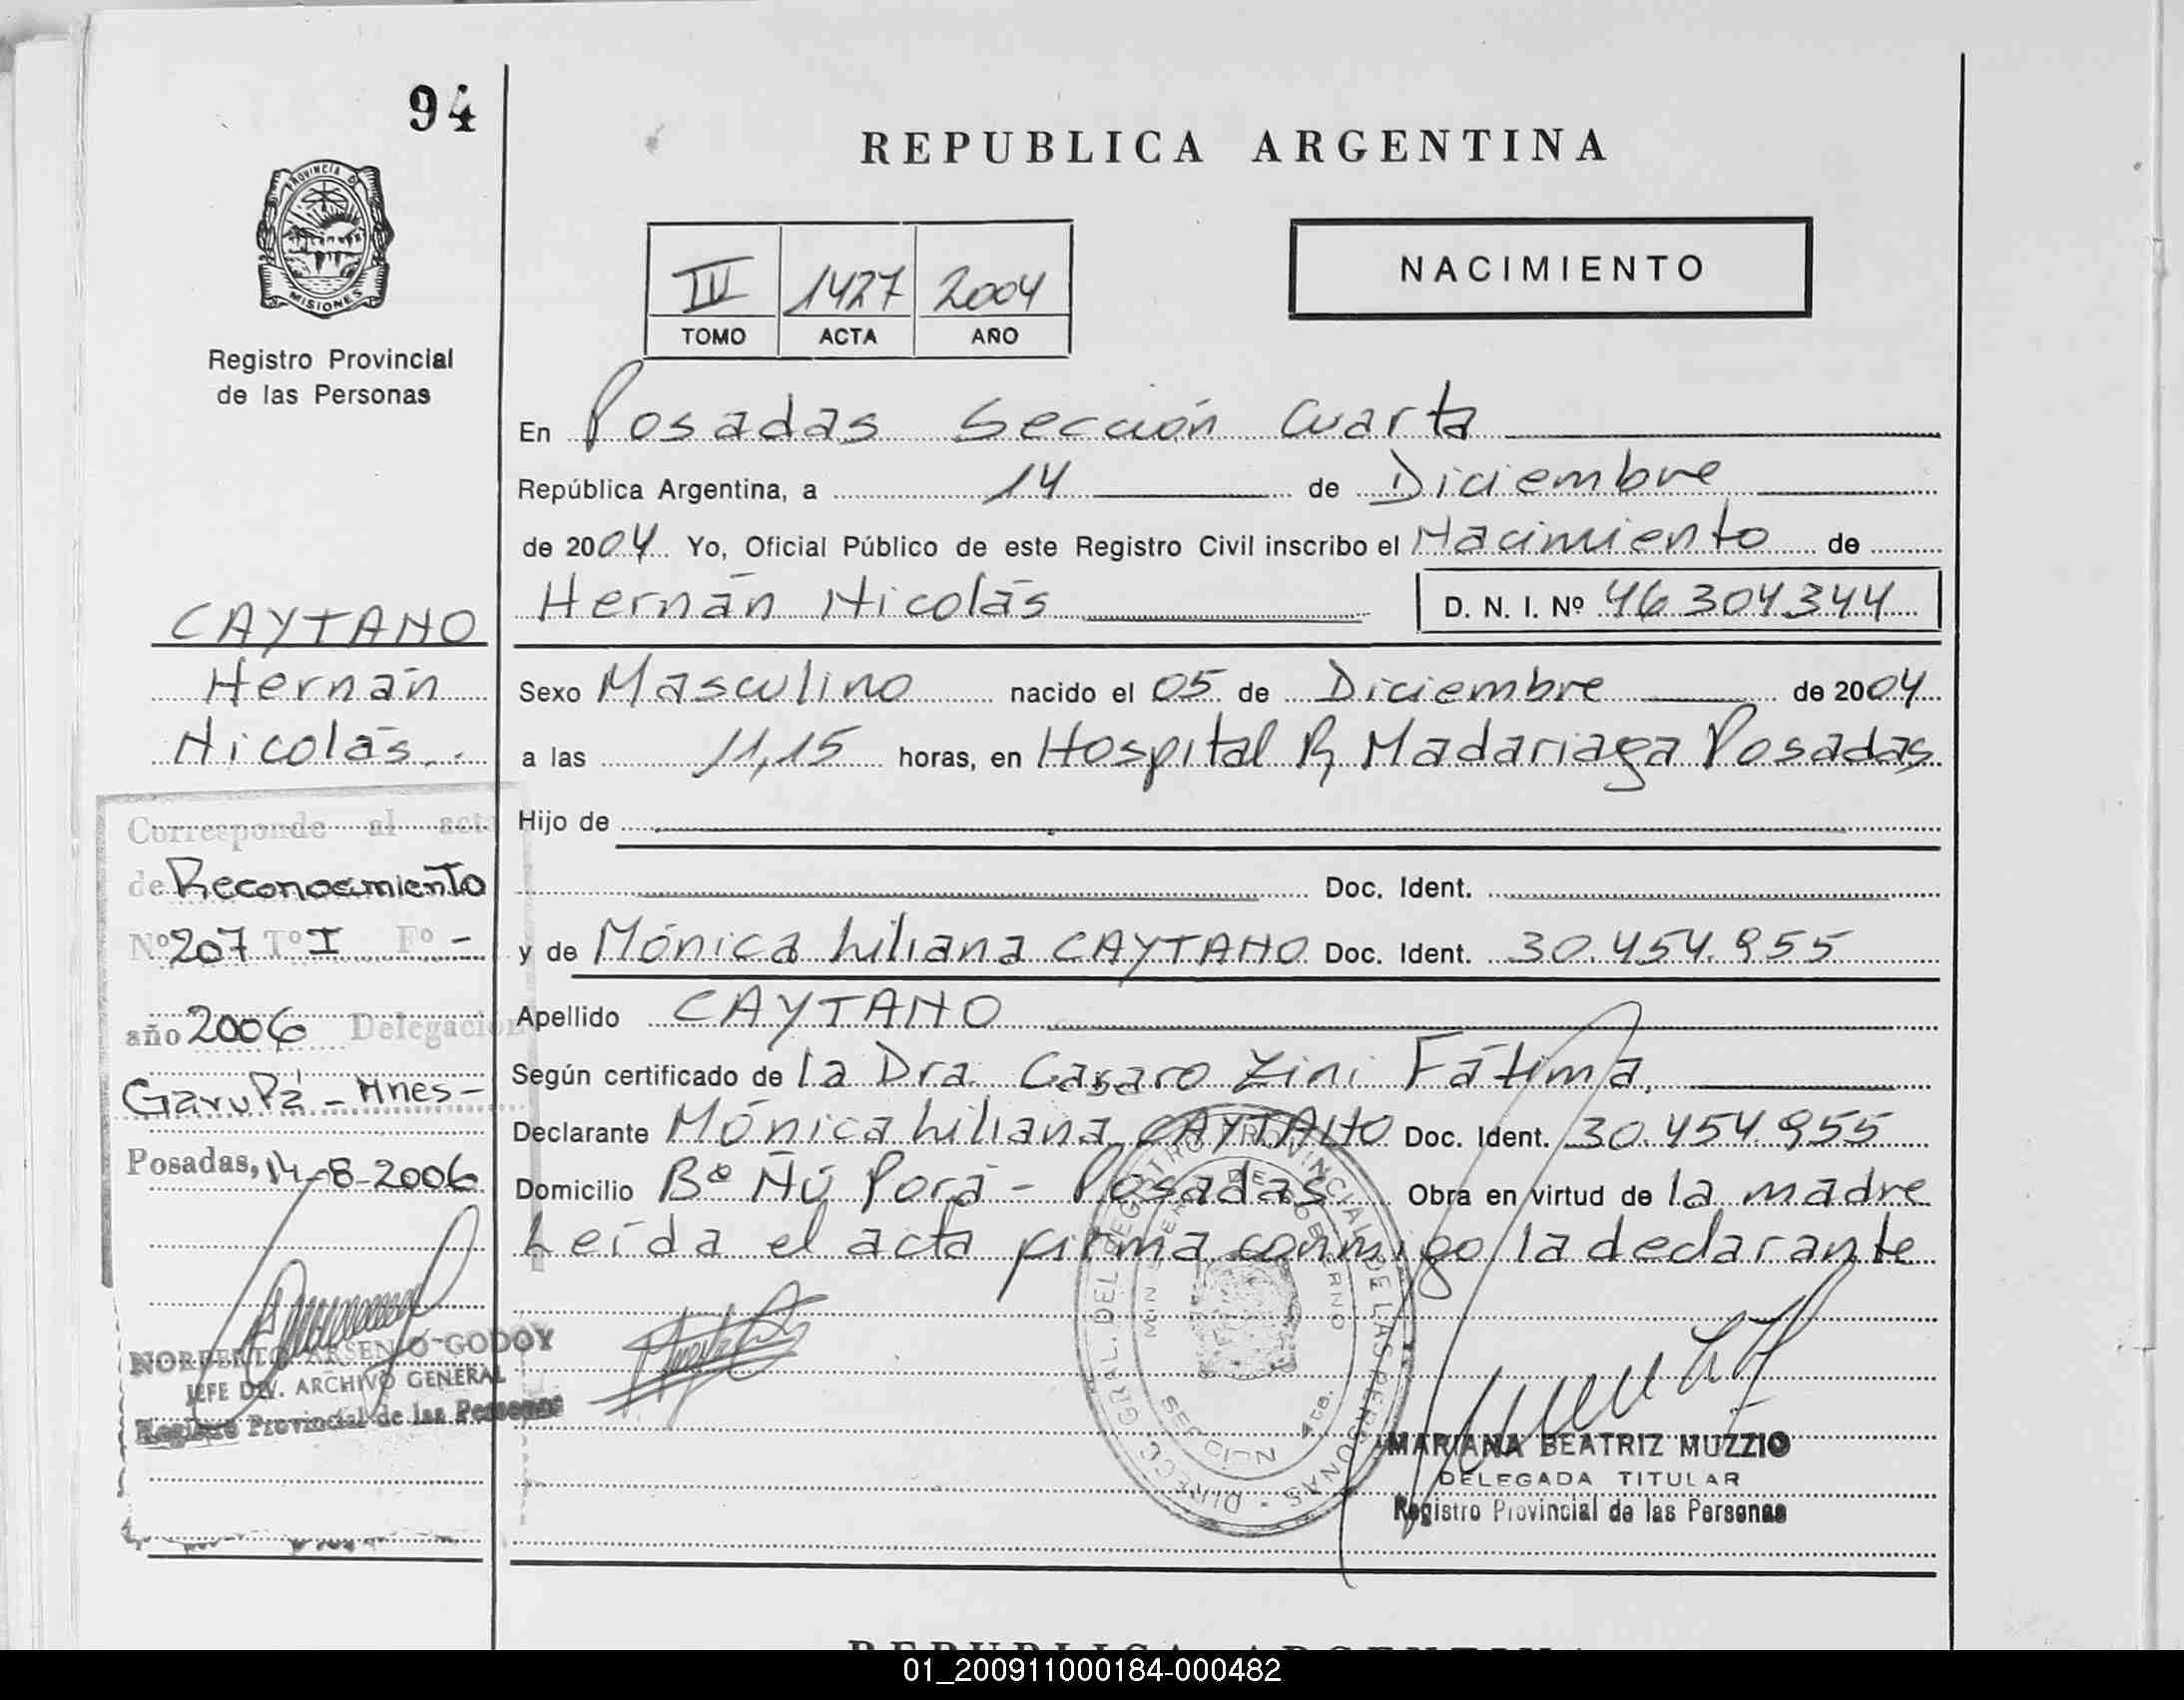 94
REPUBLICA ARGENTINA
PROVINCIA D
MISIONES
Registro Provincial
de las Personas
IV 1427 2004
TOMO ACTA AÑO
NACIMIENTO
En Posadas Sección Cuarta
República Argentina, a 14 de Diciembre
de 2004 Yo, Oficial Público de este Registro Civil inscribo el Nacimiento de
Hernán Nicolás D. N. I. Nº 46 304 344
CAYTANO
Hernán
Nicolás
Sexo Masculino nacido el 05 de Diciembre de 2004
a las 11,15 horas, en Hospital R, Madariaga Posadas
Hijo de
Doc. Ident.
y de Mónica Liliana CAYTANO Doc. Ident. 30.454.955
Apellido CAYTANO
Según certificado de la Dra. Casaro Zini Fátima,
Declarante Mónica Liliana CAYTANO Doc. Ident. 30.454.955
Domicilio Bº Ñú Porá - Posadas Obra en virtud de la madre
Leída el acta firma conmigo la declarante
Corresponde al acta
de Reconocimiento
Nº 207 Tº I Fº -
año 2006 Delegación
Garupá - Mnes -
Posadas, 14-8-2006
NORBERTO ARSENIO GODOY
JEFE DIV. ARCHIVO GENERAL
Registro Provincial de las Personas
DIRECC. GRAL. DEL REGISTRO PROVINCIAL DE LAS PERSONAS
DE GOBIERNO
SECCION 4ta.
MARIANA BEATRIZ MUZZIO
DELEGADA TITULAR
Registro Provincial de las Personas
REPUBLICA ARGENTINA
01_200911000184-000482